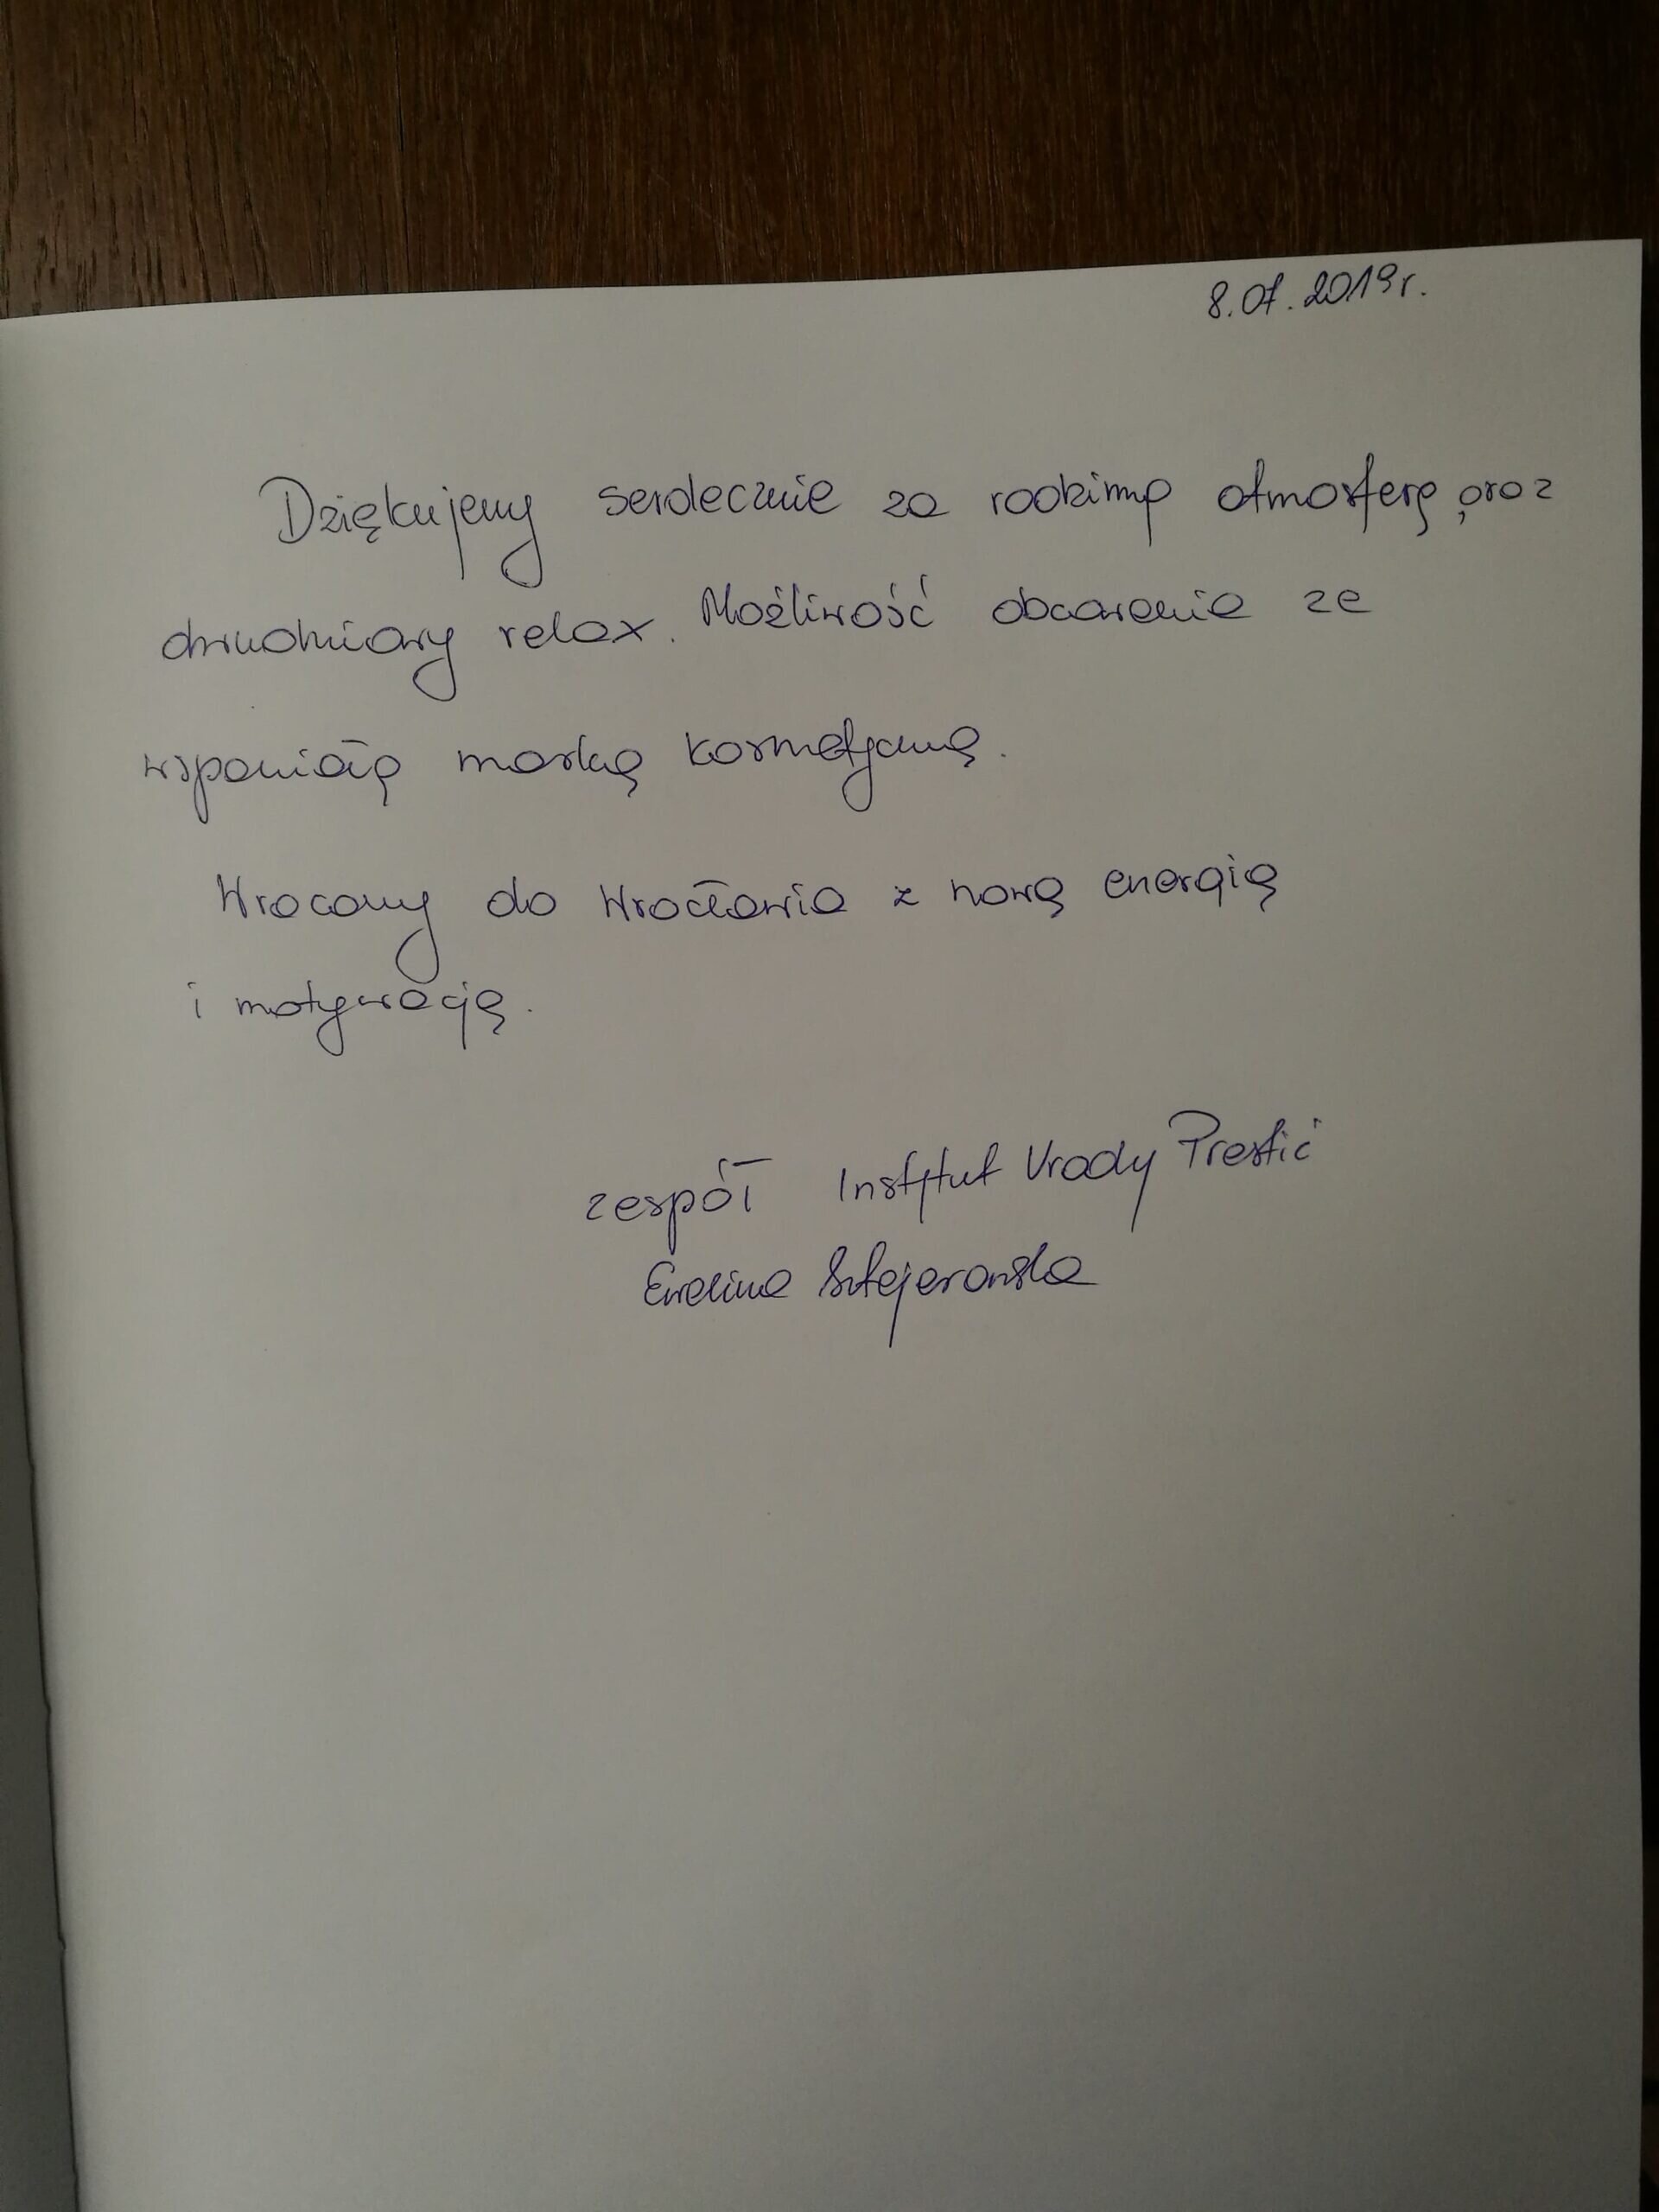 8.07.2019r.
Dziękujemy serdecznie za rodzinną atmosferę, oraz
dwudniowy relax. Możliwość obcowania ze
wspaniałą marką kosmetyczną.
Wracamy do Wrocławia z nową energią
i motywacją.
zespół Instytut Urody Prestiż
Ewelina Sztejerowska